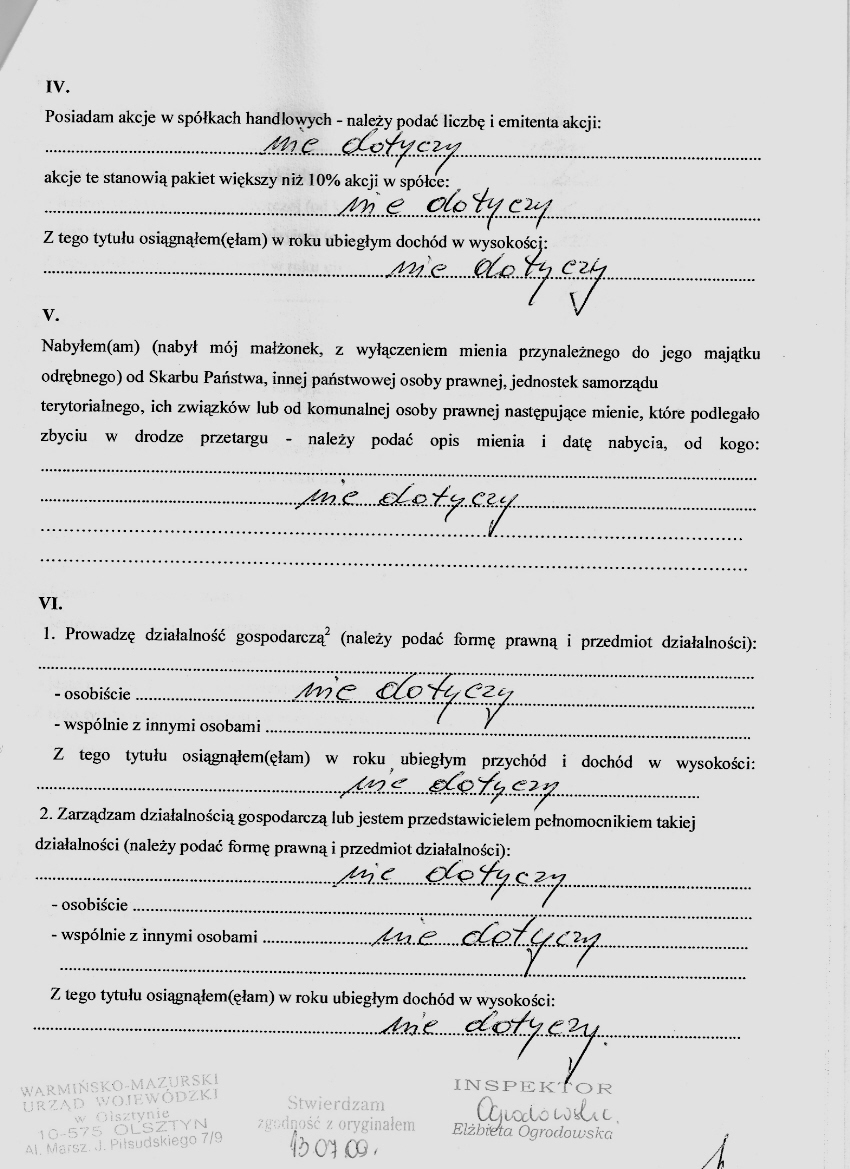 IV.
Posiadam akcje w spółkach handlowych - należy podać liczbę i emitenta akcji:
nie dotyczy
akcje te stanowią pakiet większy niż 10% akcji w spółce:
nie dotyczy
Z tego tytułu osiągnąłem(ęłam) w roku ubiegłym dochód w wysokości:
nie dotyczy
V.
Nabyłem(am) (nabył mój małżonek, z wyłączeniem mienia przynależnego do jego majątku
odrębnego) od Skarbu Państwa, innej państwowej osoby prawnej, jednostek samorządu
terytorialnego, ich związków lub od komunalnej osoby prawnej następujące mienie, które podlegało
zbyciu w drodze przetargu - należy podać opis mienia i datę nabycia, od kogo:
nie dotyczy
VI.
1. Prowadzę działalność gospodarczą² (należy podać formę prawną i przedmiot działalności):
- osobiście nie dotyczy
- wspólnie z innymi osobami
Z tego tytułu osiągnąłem(ęłam) w roku ubiegłym przychód i dochód w wysokości:
nie dotyczy
2. Zarządzam działalnością gospodarczą lub jestem przedstawicielem pełnomocnikiem takiej
działalności (należy podać formę prawną i przedmiot działalności):
nie dotyczy
- osobiście
- wspólnie z innymi osobami nie dotyczy
Z tego tytułu osiągnąłem(ęłam) w roku ubiegłym dochód w wysokości:
nie dotyczy.
WARMIŃSKO-MAZURSKI
URZĄD WOJEWÓDZKI
w Olsztynie
10-575 OLSZTYN
Al. Marsz. J. Piłsudskiego 7/9
Stwierdzam
zgodność z oryginałem
13 07 09.
INSPEKTOR
Ogrodowska
Elżbieta Ogrodowska